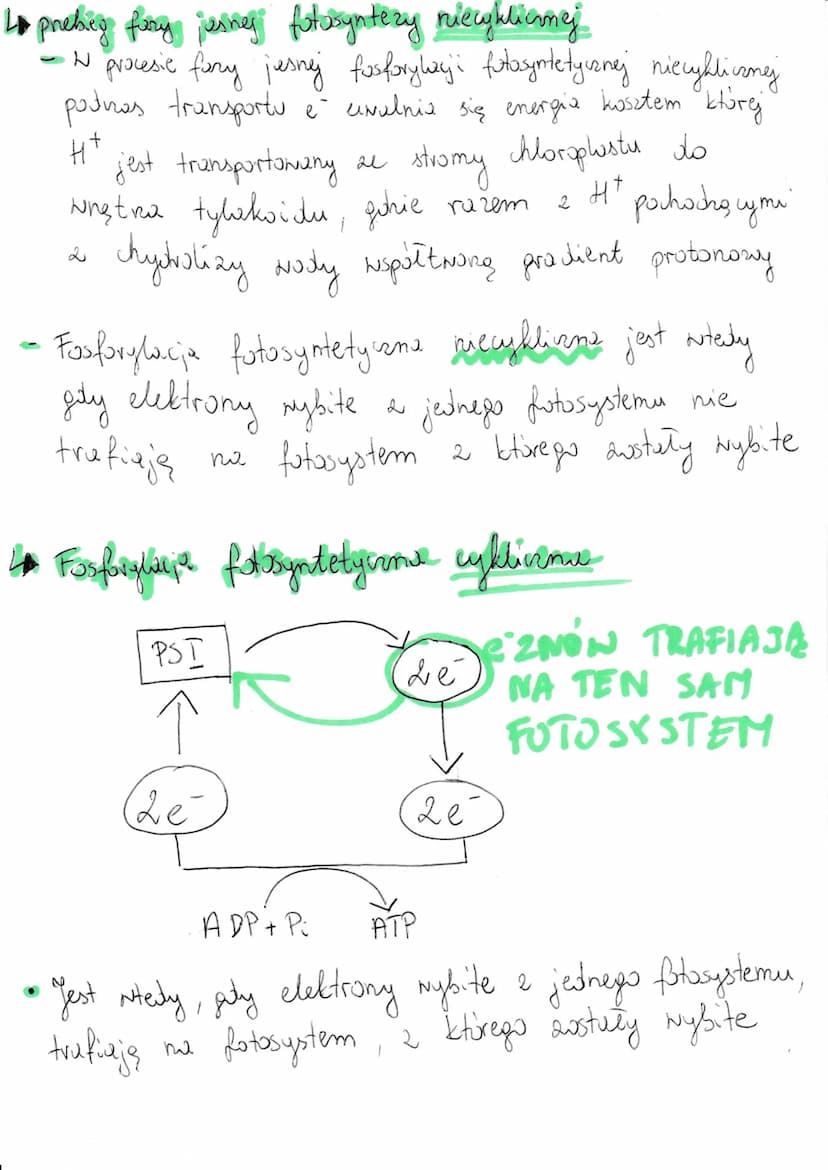 ↳ przebieg fazy jasnej fotosyntezy niecyklicznej
- W procesie fazy jasnej fosforylacji fotosyntetycznej niecyklicznej
podczas transportu e⁻ uwalnia się energia kosztem której
H⁺ jest transportowany ze stromy chloroplastu do
wnętrza tylakoidu, gdzie razem z H⁺ pochodzącymi
z chydrolizy wody współtworzą gradient protonowy
- Fosforylacja fotosyntetyczna niecykliczna jest wtedy
gdy elektrony wybite z jednego fotosystemu nie
trafiają na fotosystem z którego zostały wybite
↳ Fosforylacja fotosyntetyczna cykliczna
PSI
2e⁻
e⁻ ZNÓW TRAFIAJĄ
NA TEN SAM
FOTOSYSTEM
2e⁻
2e⁻
ADP + Pi
ATP
• Jest wtedy, gdy elektrony wybite z jednego fotosystemu,
trafiają na fotosystem, z którego zostały wybite